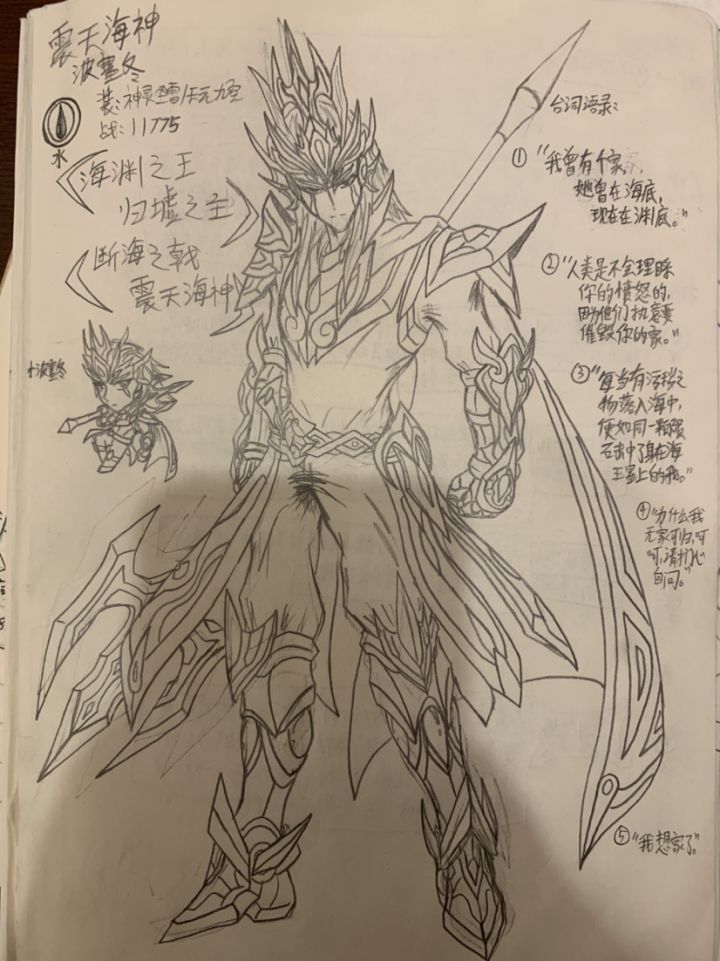 震天海神
波塞冬
装：神灵
战：11775
水
海渊之王
归墟之主
断海之戟
震天海神
小波塞冬
台词语录：
①“我曾有个家，
她曾在海底，
现在在渊底。”
②“人类是不会理睬
你的愤怒的，
因为他们执意要
摧毁你的家。”
③“每当有污秽之
物落入海中，
便如同一颗陨
石击中了身在海
王星上的我。”
④“为什么我
无家可归，呵
呵，请扪心
自问。”
⑤“我想家了。”